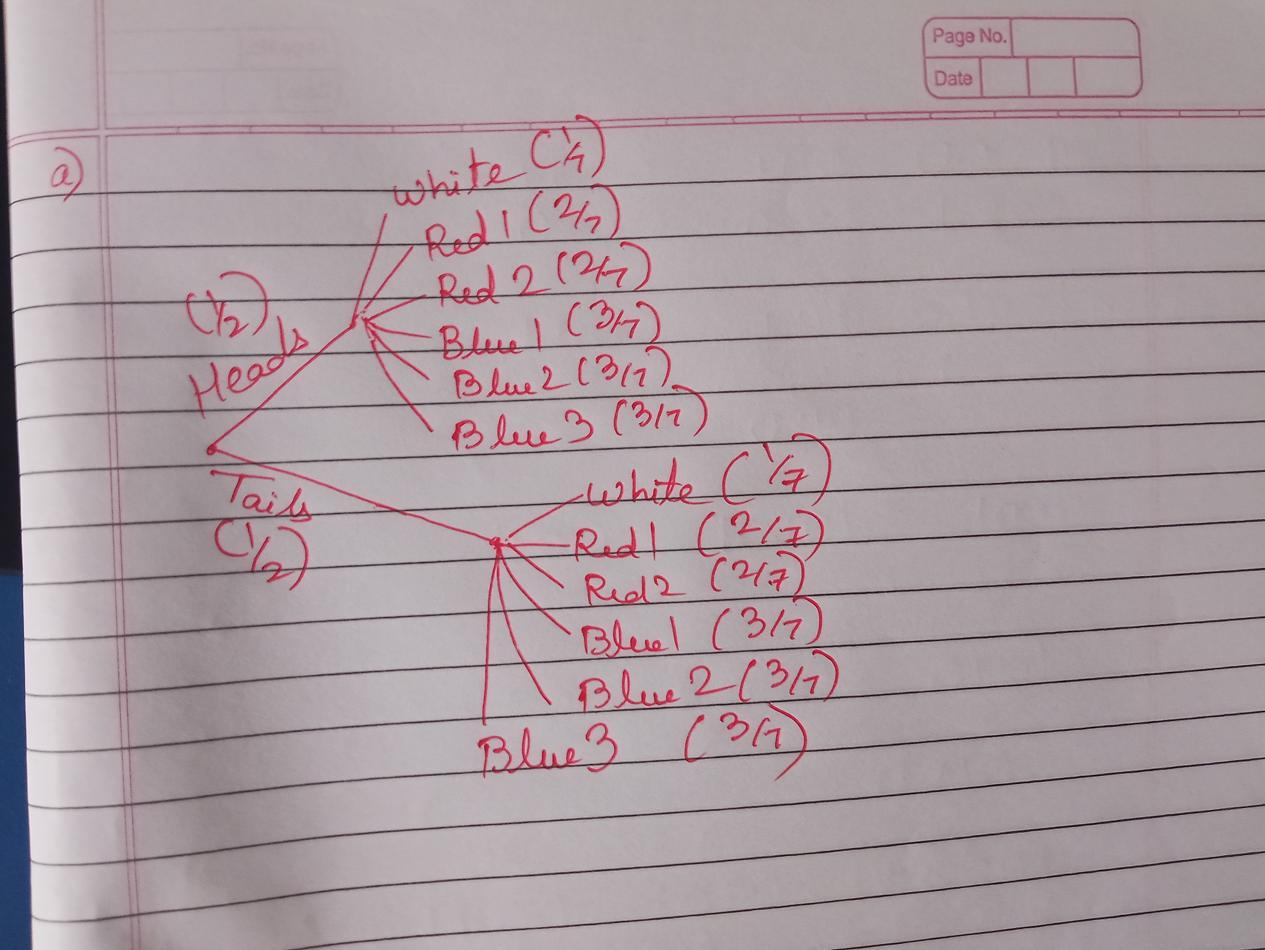 Page No.
Date
a)
White (1/7)
Red 1 (2/7)
Red 2 (2/7)
(1/2)
Heads
Blue 1 (3/7)
Blue 2 (3/7)
Blue 3 (3/7)
Tails
(1/2)
White (1/7)
Red 1 (2/7)
Red 2 (2/7)
Blue 1 (3/7)
Blue 2 (3/7)
Blue 3 (3/7)